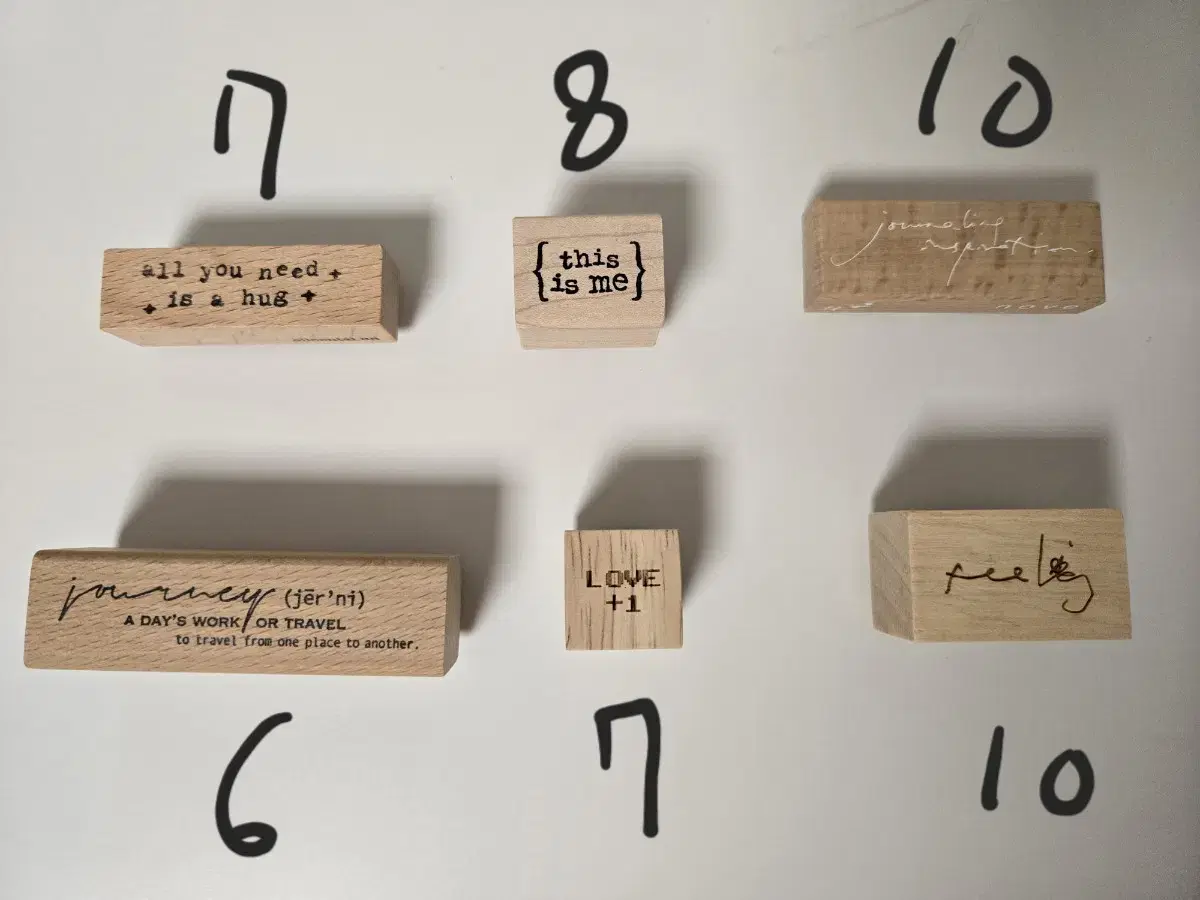 7
8
10
all you need
is a hug
{this
is me}
journaling
inspiration
journey (jēr'ni)
A DAY'S WORK OR TRAVEL
to travel from one place to another.
LOVE
+1
feeling
6
7
10